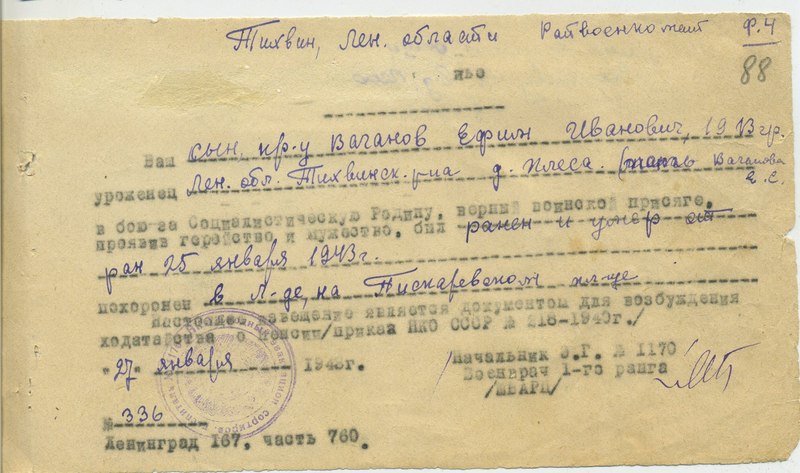 Тихвин, Лен. области Райвоенкомат Ф.4
88
Ваш сын, кр-ц Ваганов Ефим Иванович, 1913 г.р.
уроженец Лен. обл. Тихвинск. р-на д. Плеса. (мать Ваганова Е.С.
в бою за Социалистическую Родину, верный воинской присяге,
проявив геройство и мужество, был ранен и умер от
ран 25 января 1943 г.
похоронен в Л-де, на Пискаревском кл-ще
Настоящее извещение является документом для возбуждения
ходатайства о пенсии/приказ НКО СССР № 218-1940г./
"27 января 1943г. Начальник Э.Г. № 1170
Военврач 1-го ранга
/ШВАРЦ/
№ 336
Ленинград 167, часть 760.